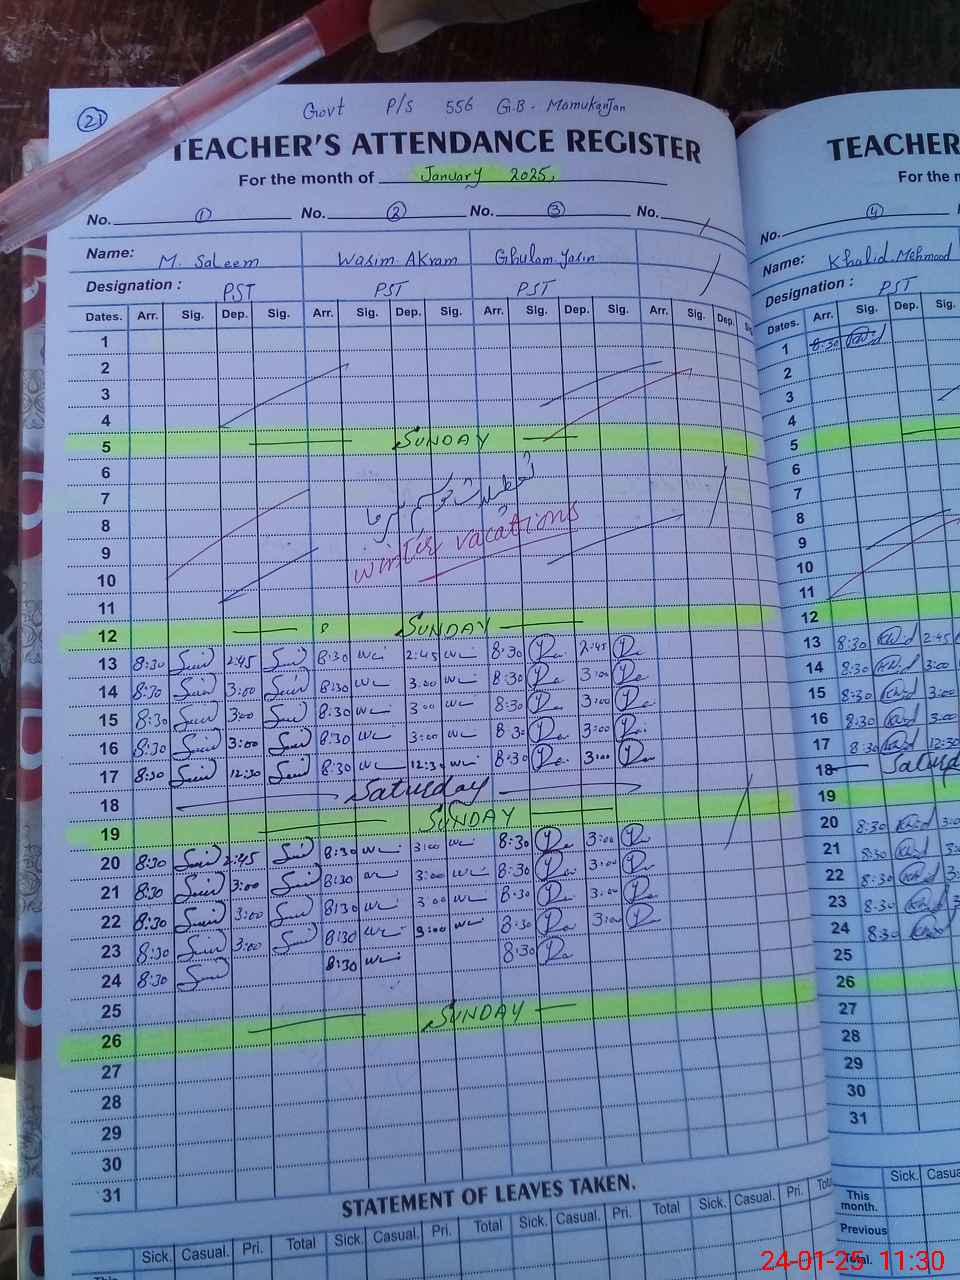 (21)
Govt P/S 556 G.B. Mamukanjan
TEACHER'S ATTENDANCE REGISTER
For the month of January 2025,
No. ① No. ② No. ③ No.
Name: M. Saleem Wasim Akram Ghulam Yasin
Designation : PST PST PST
Dates. Arr. Sig. Dep. Sig. Arr. Sig. Dep. Sig. Arr. Sig. Dep. Sig. Arr. Sig. Dep.
1
2
3
4
5 SUNDAY
6
7 تعطیلات موسم سرما
8
9 winter vacations
10
11
12 SUNDAY
13 8:30 2:45 8:30 2:45 8:30 2:45
14 8:30 3:00 8:30 3:00 8:30 3:00
15 8:30 3:00 8:30 3:00 8:30 3:00
16 8:30 3:00 8:30 3:00 8:30 3:00
17 8:30 12:30 8:30 12:30 8:30 3:00
18 Saturday
19 SUNDAY
20 8:30 2:45 8:30 3:00 8:30 3:00
21 8:30 3:00 8:30 3:00 8:30 3:00
22 8:30 3:00 8:30 3:00 8:30 3:00
23 8:30 3:00 8:30 3:00 8:30 3:00
24 8:30 8:30 8:30
25
26 SUNDAY
27
28
29
30
31
STATEMENT OF LEAVES TAKEN.
Sick. Casual. Pri. Total Sick. Casual. Pri. Total Sick. Casual. Pri. Total Sick. Casual. Pri.
TEACHER
For the
No. ④
Name: Khalid Mehmood
Designation : PST
Dates. Arr. Sig. Dep. Sig.
1 8:30
2
3
4
5
6
7
8
9
10
11
12
13 8:30 2:45
14 8:30 3:00
15 8:30 3:00
16 8:30 3:00
17 8:30 12:30
18
19
20 8:30
21 8:30
22 8:30
23 8:30
24 8:30
25
26
27
28
29
30
31
Sick.
This month.
Previous
Total.
24-01-25 11:30